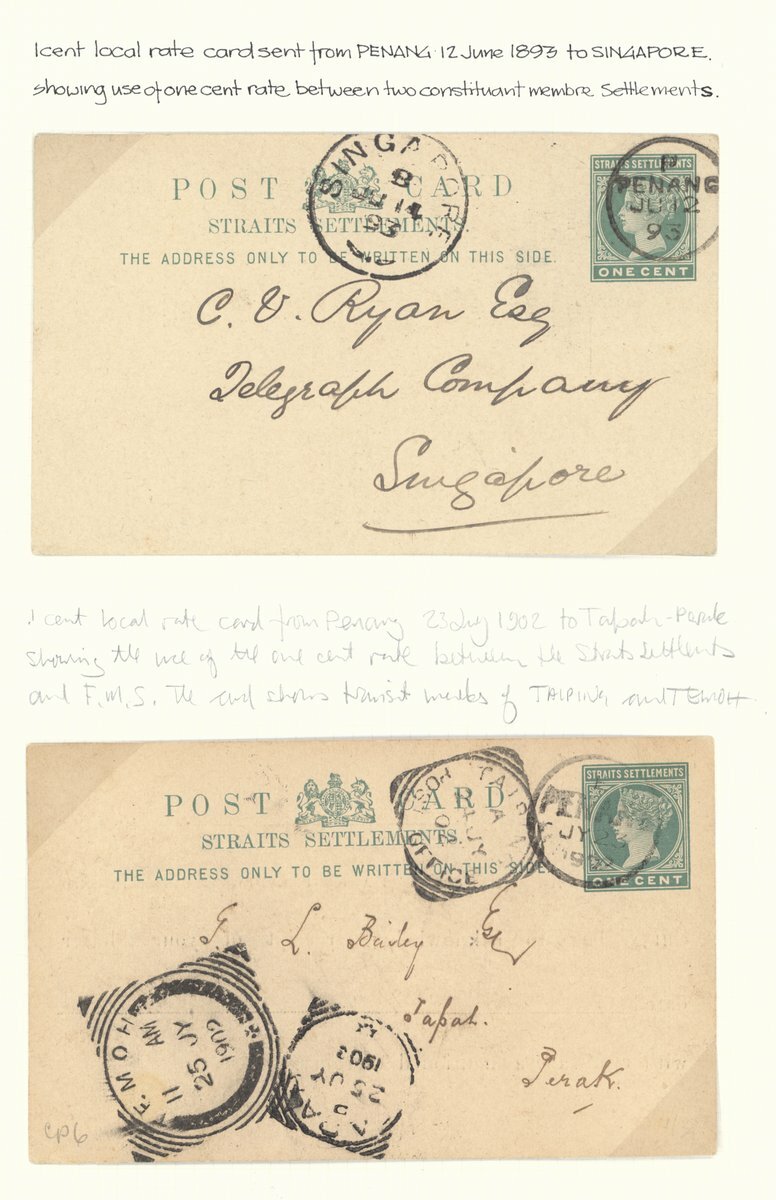 1 cent local rate card sent from PENANG 12 June 1893 to SINGAPORE.
showing use of one cent rate between two constituant membre Settlements.
POST CARD
STRAITS SETTLEMENTS.
THE ADDRESS ONLY TO BE WRITTEN ON THIS SIDE.
SINGAPORE
B
JU 14
93
STRAITS SETTLEMENTS
P
PENANG
JU 12
93
ONE CENT
C. V. Ryan Esq
Telegraph Company
Singapore
1 cent local rate card from Penang 23 July 1902 to Tapah - Perak
showing the use of the one cent rate between the Straits Settlements
and F.M.S. The card shows transit marks of TAIPING and TEMOH.
POST CARD
STRAITS SETTLEMENTS.
THE ADDRESS ONLY TO BE WRITTEN ON THIS SIDE
POST OFFICE
A
JY
STRAITS SETTLEMENTS
JY
ONE CENT
L. Bailey Esq
Tapah.
Perak.
EMOH
11 AM
25 JY
1902
25 JY
CP6